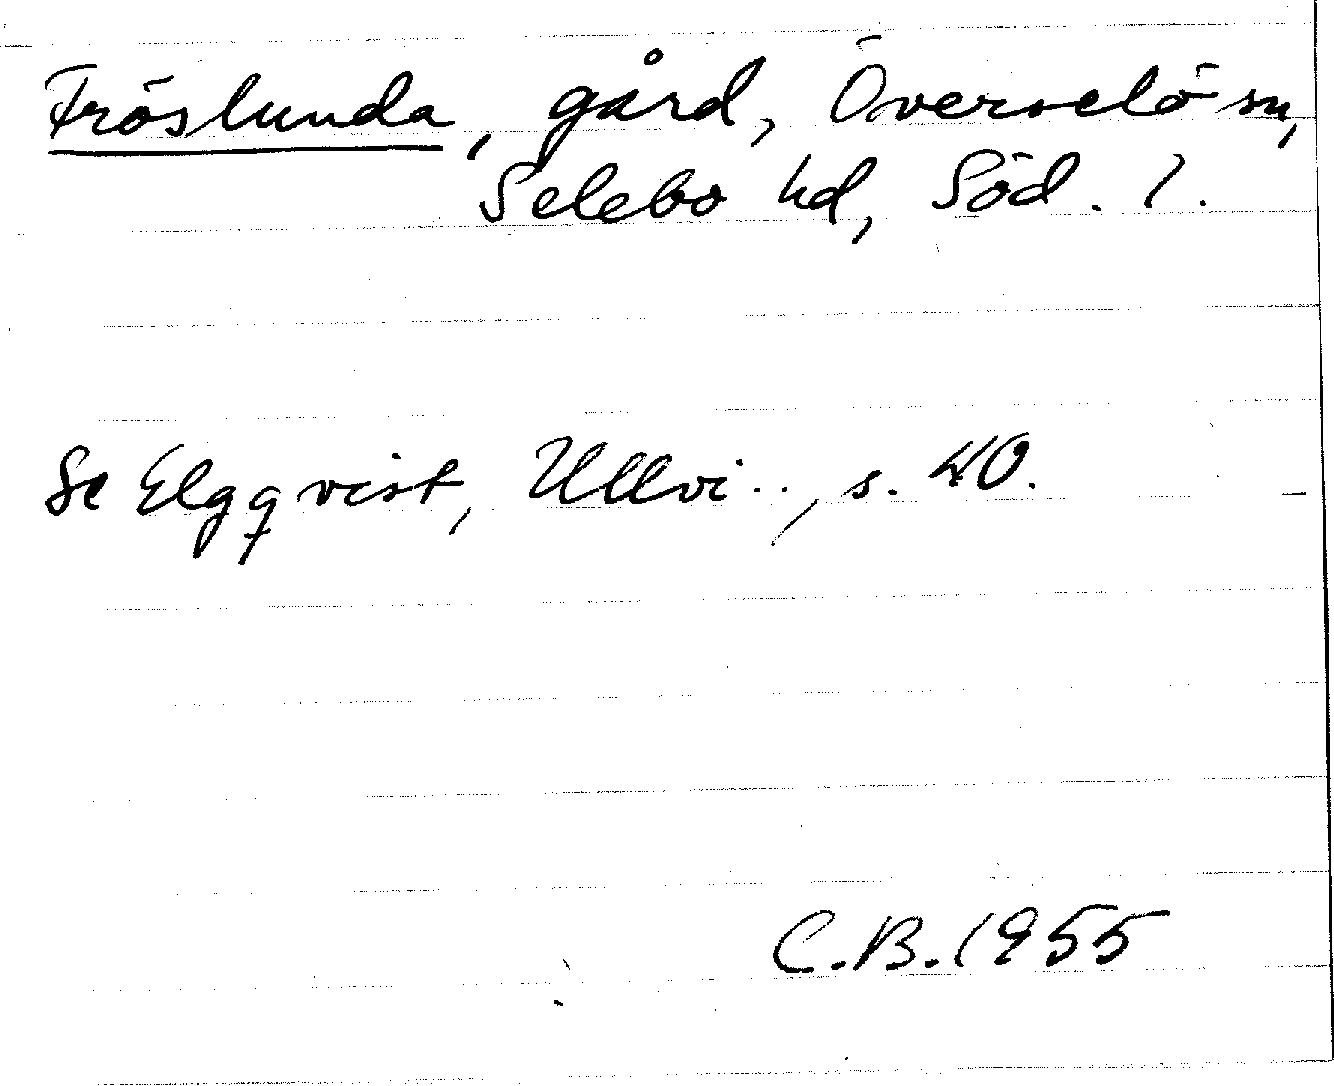 Fröslunda, gård, Överselö sn,
Selebo hd, Söd. l.
Se Elgqvist, Ullvi.., s. 40.
C.B. 1955